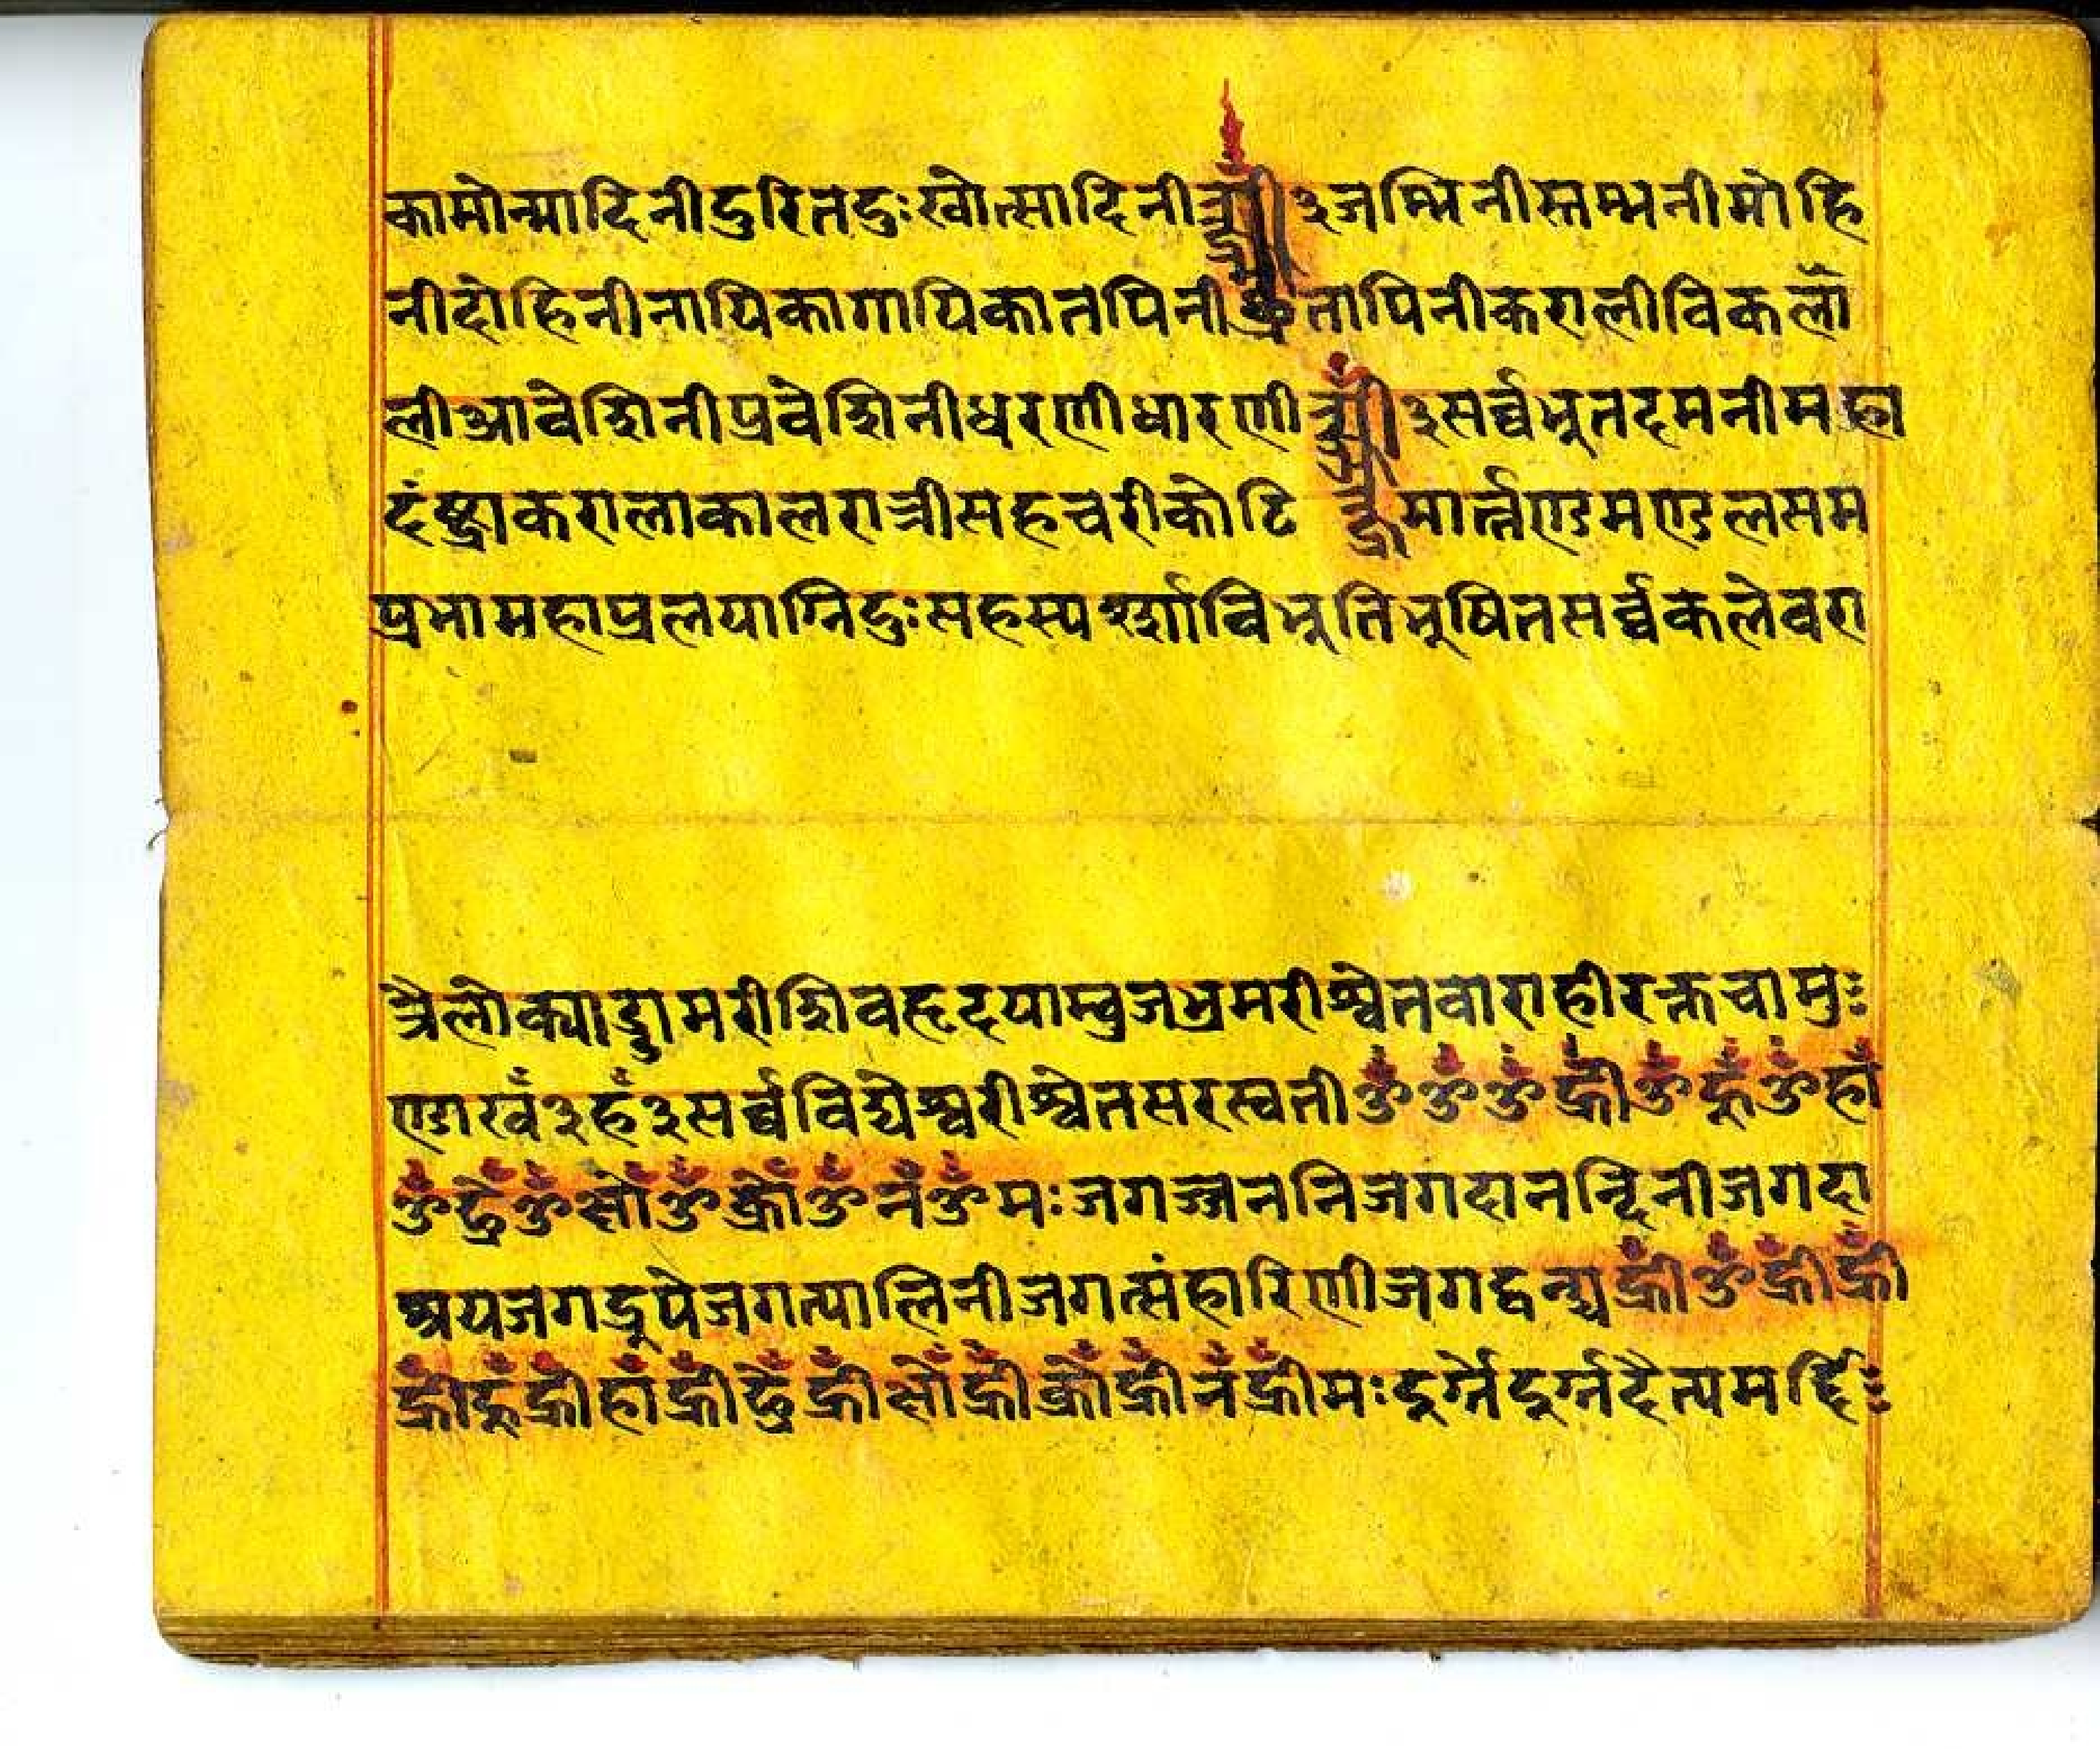 कामोन्मादिनीदुरितदुःखोत्सादिनी ३जम्भिनीस्तम्भनीमोहि
नीदोहिनीनायिकागायिकातपिनी तापिनीकरालीविकलाँ
लीआवेशिनीप्रवेशिनीधरणीधारणी ३सर्व्वभूतदमनीमहा
दंष्ट्राकरालाकालरात्रीसहचरीकोटि मार्त्तण्डमण्डलसम
प्रभामहाप्रलयाग्निदुःसहस्पर्शाविभूतिभूषितसर्व्वकलेवरा
त्रैलोक्याड्डामरीशिवहृदयाम्बुजभ्रमरीश्वेतवाराहीरक्तचामुः
ण्डाखँ३हँ३सर्व्वविद्येश्वरीश्वेतसरस्वतीॐॐॐह्रीँॐहूँॐहाँ
ॐ ॐसौँॐक्रोँॐनँॐमःजगज्जननिजगदानन्दिनीजगदा
श्रयजगद्रूपेजगत्पालिनीजगत्संहारिणीजगद्वन्द्यह्रीँॐह्रीँह्रीँ
ह्रीँहूँह्रीँहाँह्रीँ ह्रीँसौँह्रीँक्रोँह्रीँनँह्रीँमःदुर्ग्गेदुर्ग्गदैत्यमर्द्दिः